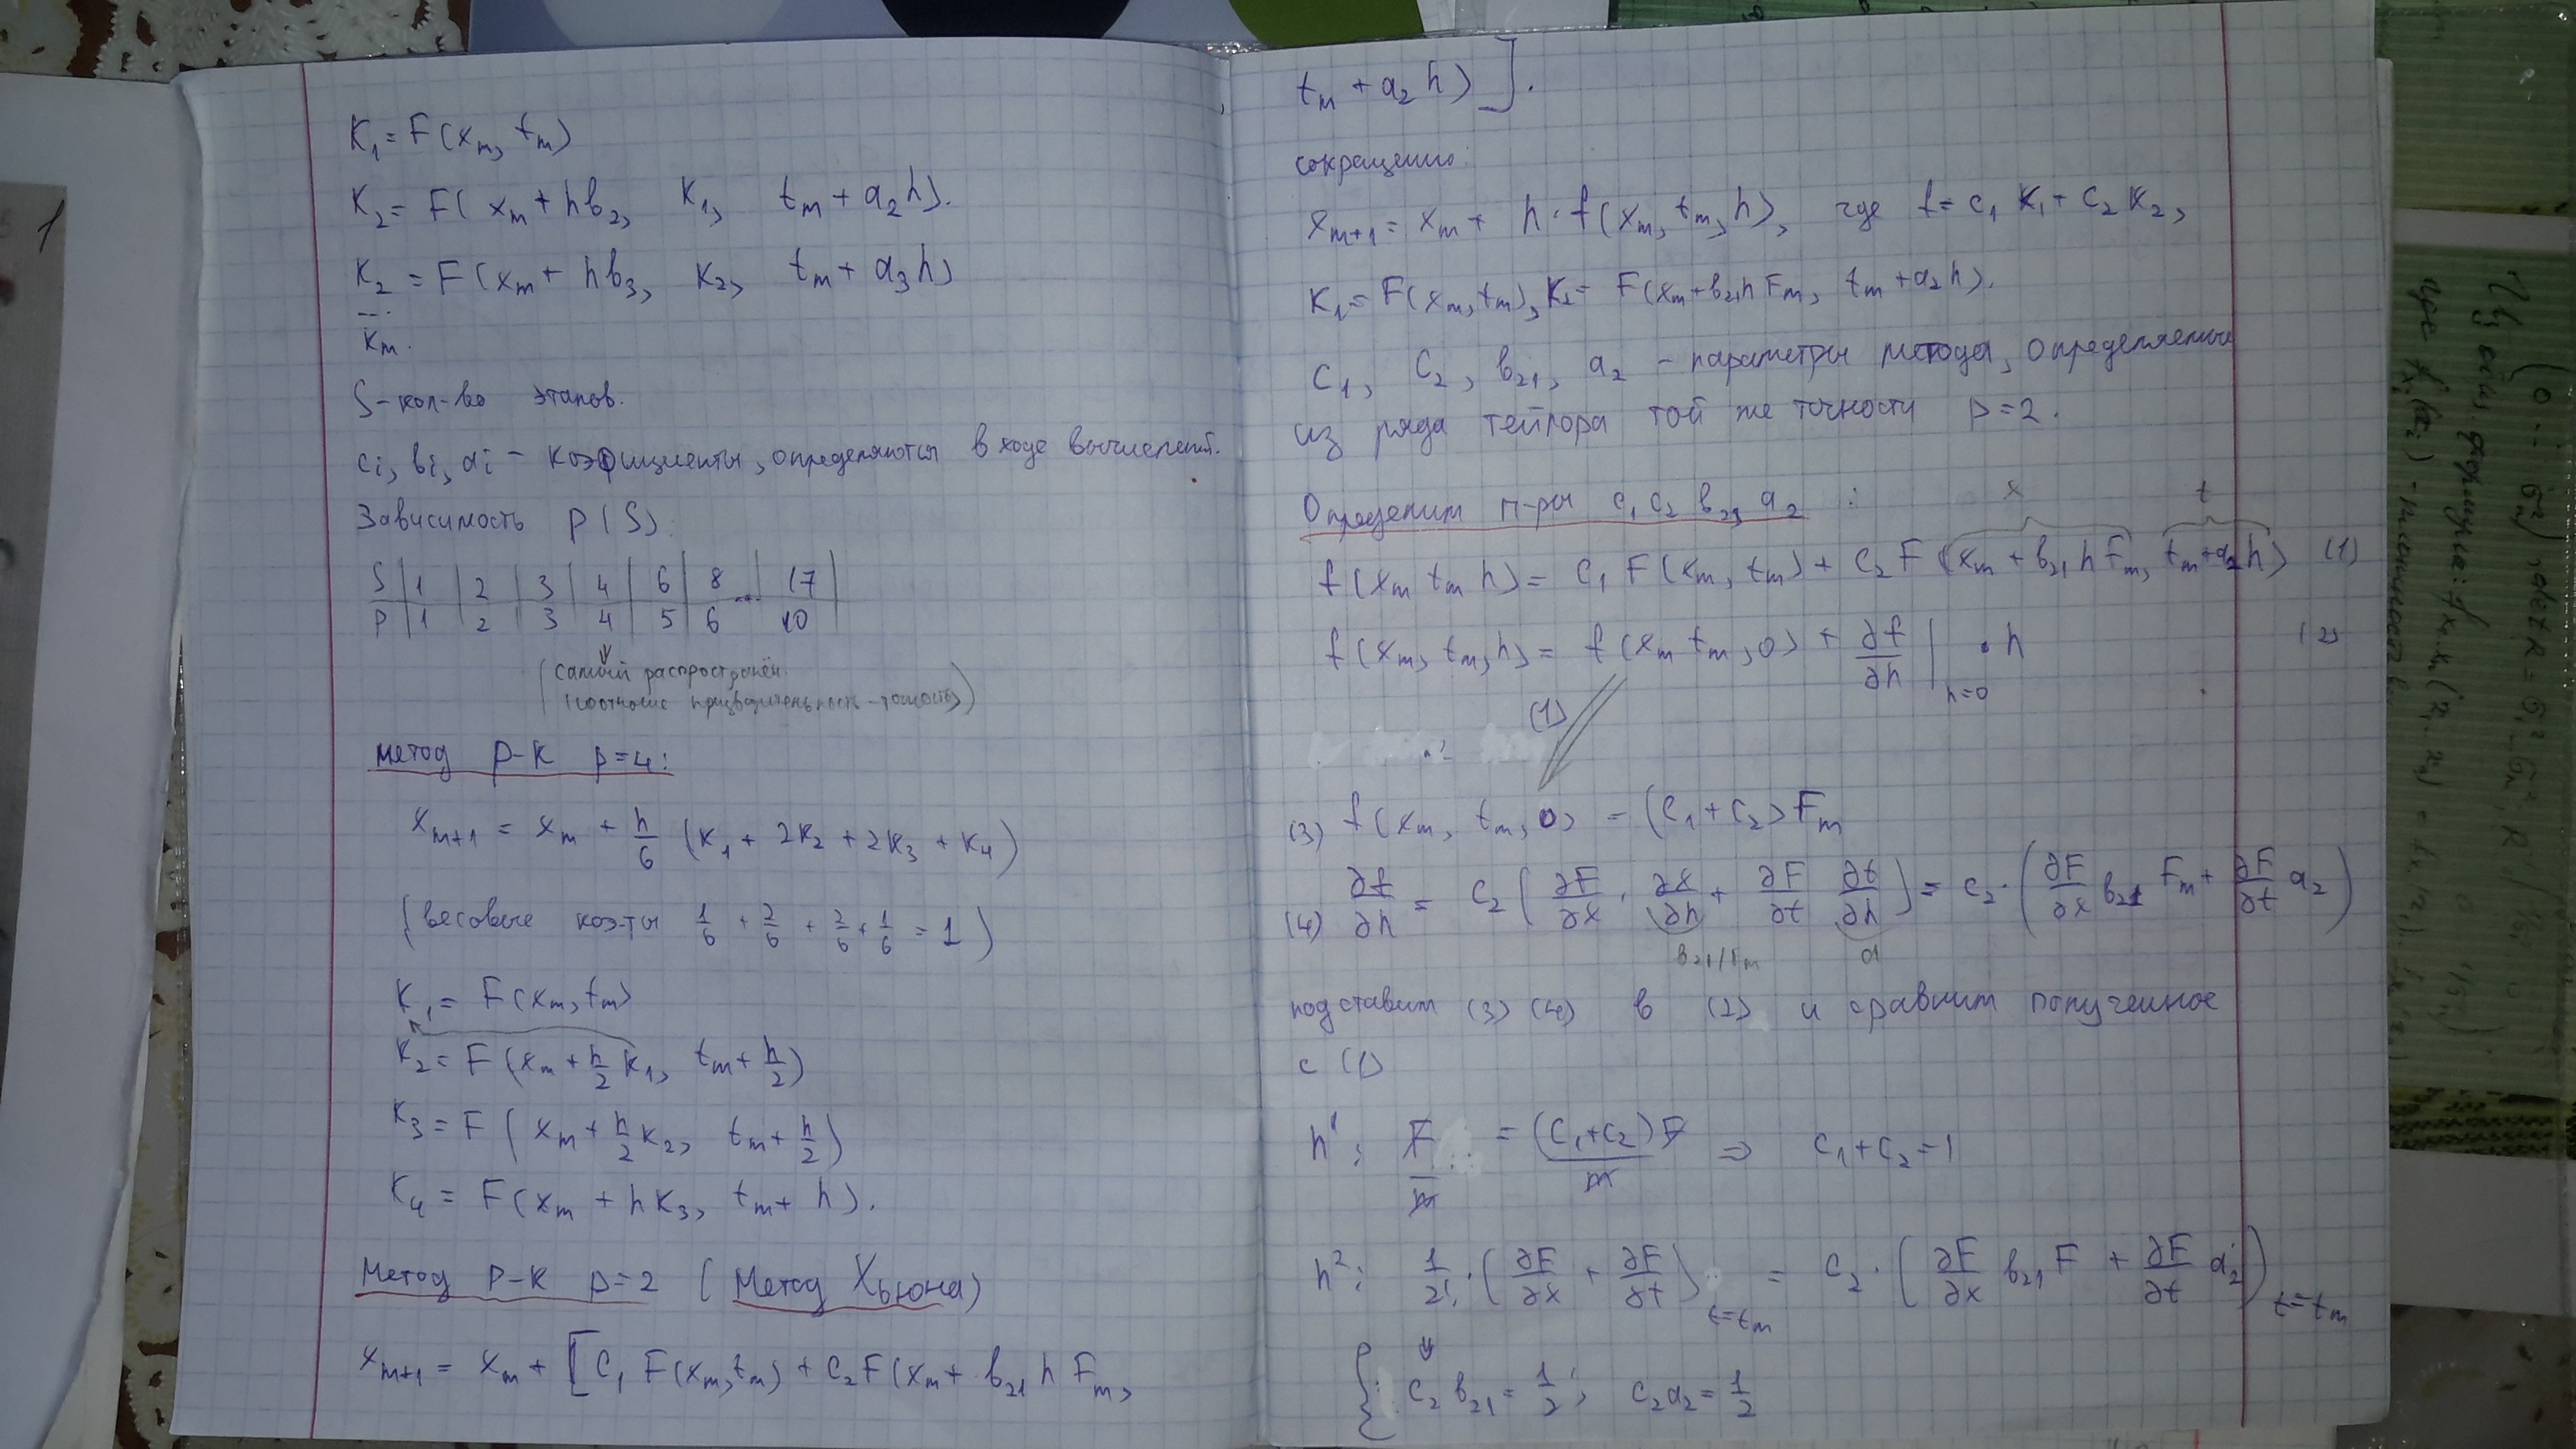 K₁ = F(xₘ, tₘ)
K₂ = F( xₘ + hb₂, K₁, tₘ + a₂h).
K₂ = F(xₘ + hb₃, K₂, tₘ + a₃h)
...
Kₘ.
S - кол-во этапов.
cᵢ, bᵢ, aᵢ - коэфициенты, определяются в ходе вычислений.
Зависимость P(S).
S | 1 | 2 | 3 | 4 | 6 | 8 ... 17
P | 1 | 2 | 3 | 4 | 5 | 6 10
(самый распростанён.
производительность - точность)
метод Р-К р=4:
xₘ₊₁ = xₘ + h/6 (K₁ + 2K₂ + 2K₃ + K₄)
(весовые коэ-ты 1/6 + 2/6 + 2/6 + 1/6 = 1)
K₁ = F(xₘ, tₘ)
K₂ = F(xₘ + h/2 K₁, tₘ + h/2)
K₃ = F( xₘ + h/2 K₂, tₘ + h/2)
K₄ = F(xₘ + hK₃, tₘ + h).
Метод Р-К р=2 (Метод Хьюна)
xₘ₊₁ = xₘ + [C₁ F(xₘ, tₘ) + C₂F(xₘ + b₂₁ h Fₘ,
tₘ + a₂ h) ].
сокращенно:
xₘ₊₁ = xₘ + h · f(xₘ, tₘ, h), где f = c₁ K₁ + c₂ K₂,
K₁ = F(xₘ, tₘ), K₂ = F(xₘ + b₂₁h Fₘ, tₘ + a₂ h).
C₁, C₂, b₂₁, a₂ - параметры метода, определяемые
из ряда тейлора той же точности р=2.
x t
Определим п-ры c₁ c₂ b₂₁ a₂ :
f(xₘ tₘ h) = c₁ F(xₘ, tₘ) + c₂ F (xₘ + b₂₁ h Fₘ, tₘ + a₂ h) (1)
f(xₘ, tₘ, h) = f(xₘ tₘ, 0) + ∂f/∂h |ₕ₌₀ · h (2)
(1)
(3) f(xₘ, tₘ, 0) = (c₁ + c₂) Fₘ
(4) ∂f/∂h = c₂ ( ∂F/∂x · ∂x/∂h + ∂F/∂t ∂t/∂h ) = c₂ · ( ∂F/∂x b₂₁ Fₘ + ∂F/∂t a₂ )
b₂₁ Fₘ a
подставим (3) (4) в (2) и сравним полученное
с (1)
h¹: F/m = (C₁+C₂)F/m ⇒ C₁+C₂=1
h²: 1/2! · ( ∂F/∂x + ∂F/∂t ) t=tₘ = c₂ · ( ∂F/∂x b₂₁F + ∂F/∂t a₂ ) t=tₘ
⇓
{ c₂ b₂₁ = 1/2 ; c₂a₂ = 1/2
1